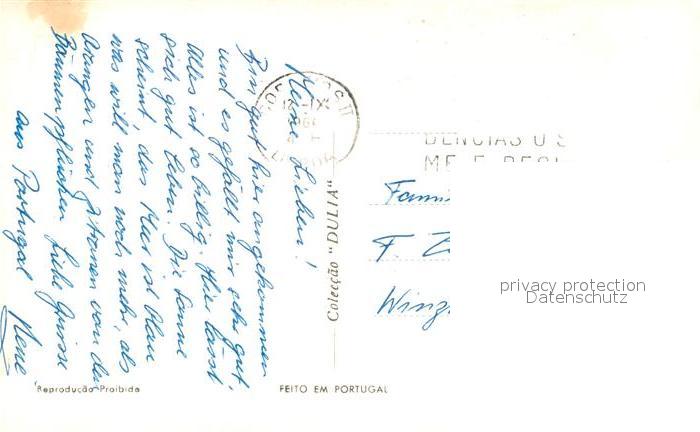 Meine Lieben!
Bin gut hier angekommen
und es gefällt mir sehr gut,
Alles ist so billig. Hier lässt
sich gut leben. Die Sonne
scheint, das Meer ist blau
was will man noch mehr, als
Orangen und Zitronen von den
Bäumen pflücken. Liebe Grüsse
aus Portugal
Colecção "DULIA"
DENCIAS U S
Fami
F.
Winz
privacy protection
Datenschutz
Reprodução Proibida
FEITO EM PORTUGAL